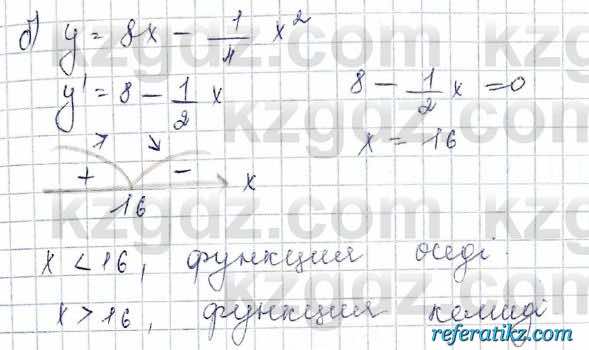 б) y = 8x - 1/4 x²
y' = 8 - 1/2 x
8 - 1/2 x = 0
x = 16
↗ ↘
+ - x
16
x < 16, функция өседі.
x > 16, функция кемиді
kzgdz.com
kzgdz.com
kzgdz.com
kzgdz.com
referatikz.com